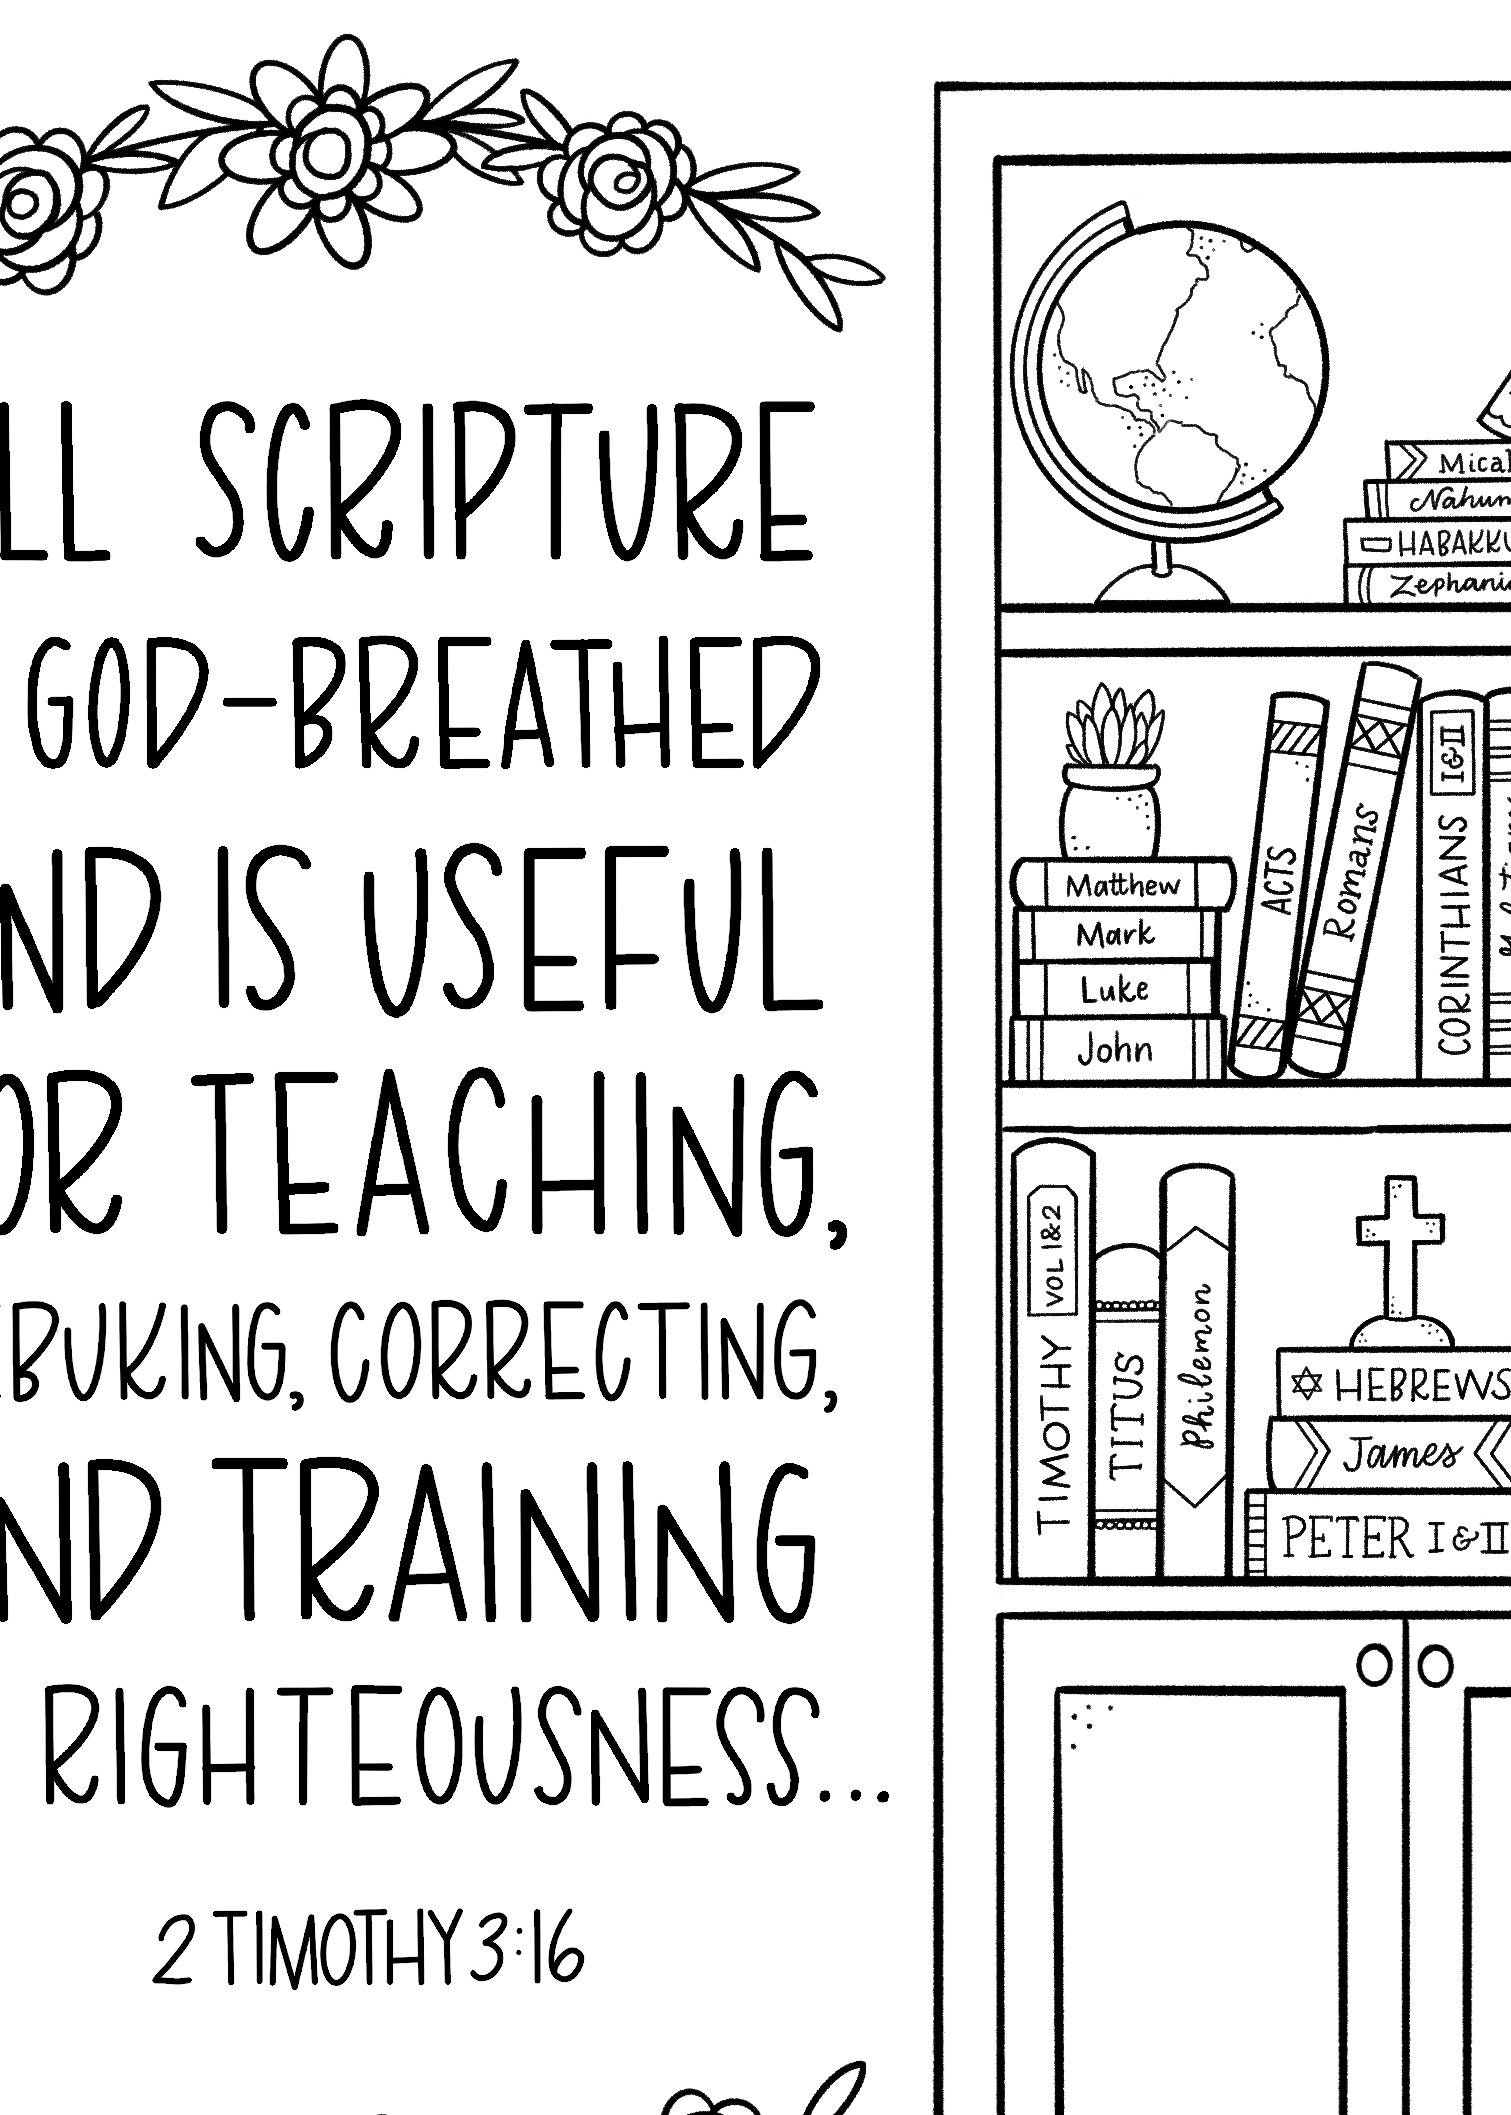 LL SCRIPTURE
GOD-BREATHED
ND IS USEFUL
OR TEACHING,
EBUKING, CORRECTING,
ND TRAINING
RIGHTEOUSNESS...
2 TIMOTHY 3:16
Micah
Nahum
HABAKKU
Zephania
Matthew
Mark
Luke
John
ACTS
Romans
CORINTHIANS I&II
TIMOTHY VOL 1&2
TITUS
Philemon
HEBREWS
James
PETER I&II